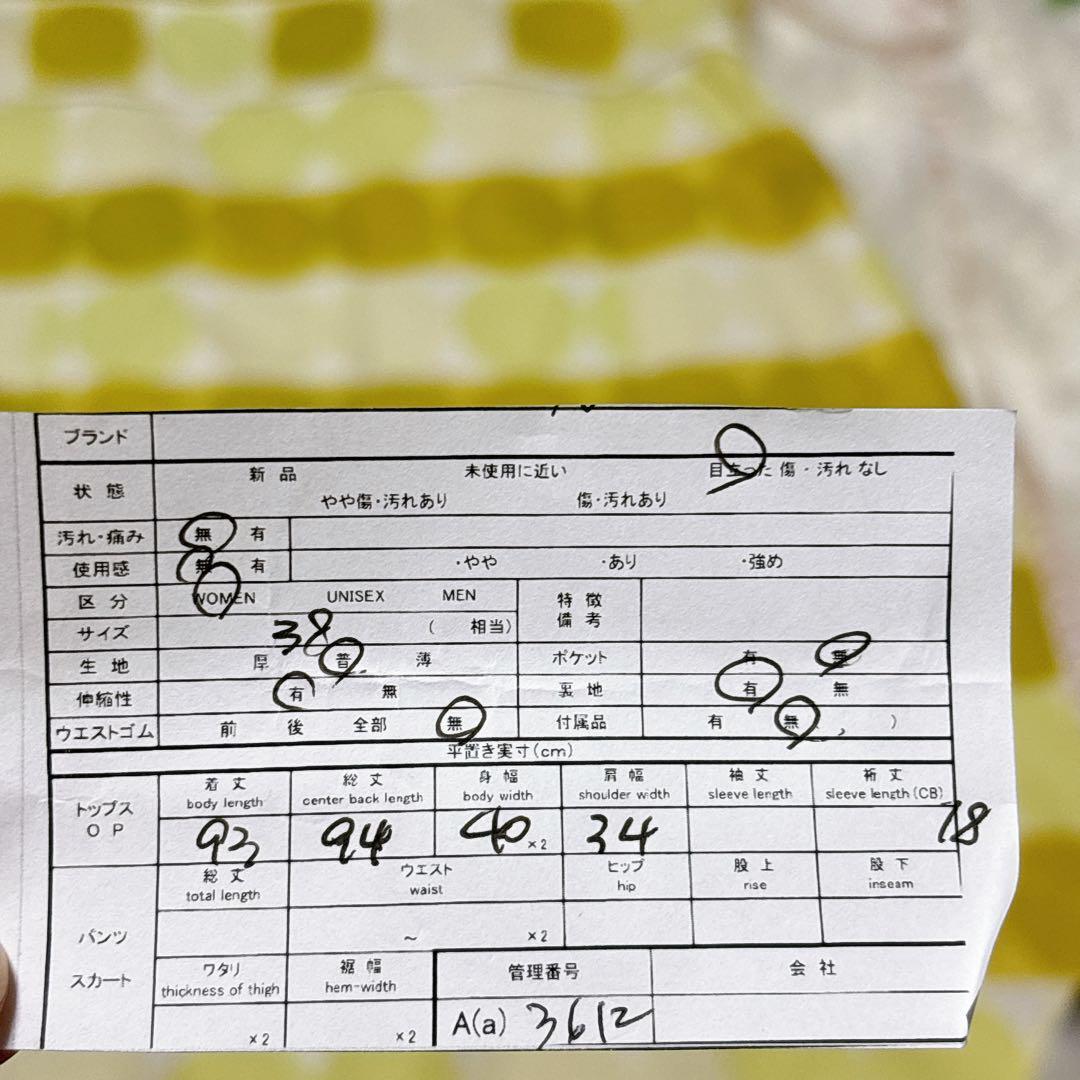 ブランド
状態 新品 未使用に近い 目立った傷・汚れなし
やや傷・汚れあり 傷・汚れあり
汚れ・痛み 無 有
使用感 無 有 ・やや ・あり ・強め
区分 WOMEN UNISEX MEN 特徴
備考
サイズ 38 ( 相当)
生地 厚 普 薄 ポケット 有 無
伸縮性 有 無 裏地 有 無
ウエストゴム 前 後 全部 無 付属品 有 無 )
平置き実寸(cm)
トップス
OP
着丈 総丈 身幅 肩幅 袖丈 裄丈
body length center back length body width shoulder width sleeve length sleeve length (CB)
93 94 40 ×2 34 78
総丈 ウエスト ヒップ 股上 股下
total length waist hip rise inseam
パンツ ～ ×2
スカート ワタリ 裾幅 管理番号 会社
thickness of thigh hem-width
×2 ×2 A(a) 3612